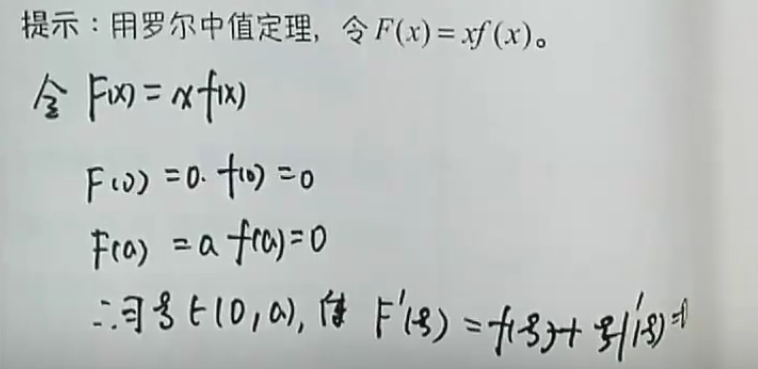 提示：用罗尔中值定理，令F(x)=xf(x)。
令 F(x) = x f(x)
F(0) = 0·f(0) = 0
F(a) = a f(a) = 0
∴∃ξ∈(0,a), 使 F'(ξ) = f(ξ)+ξf'(ξ)=0